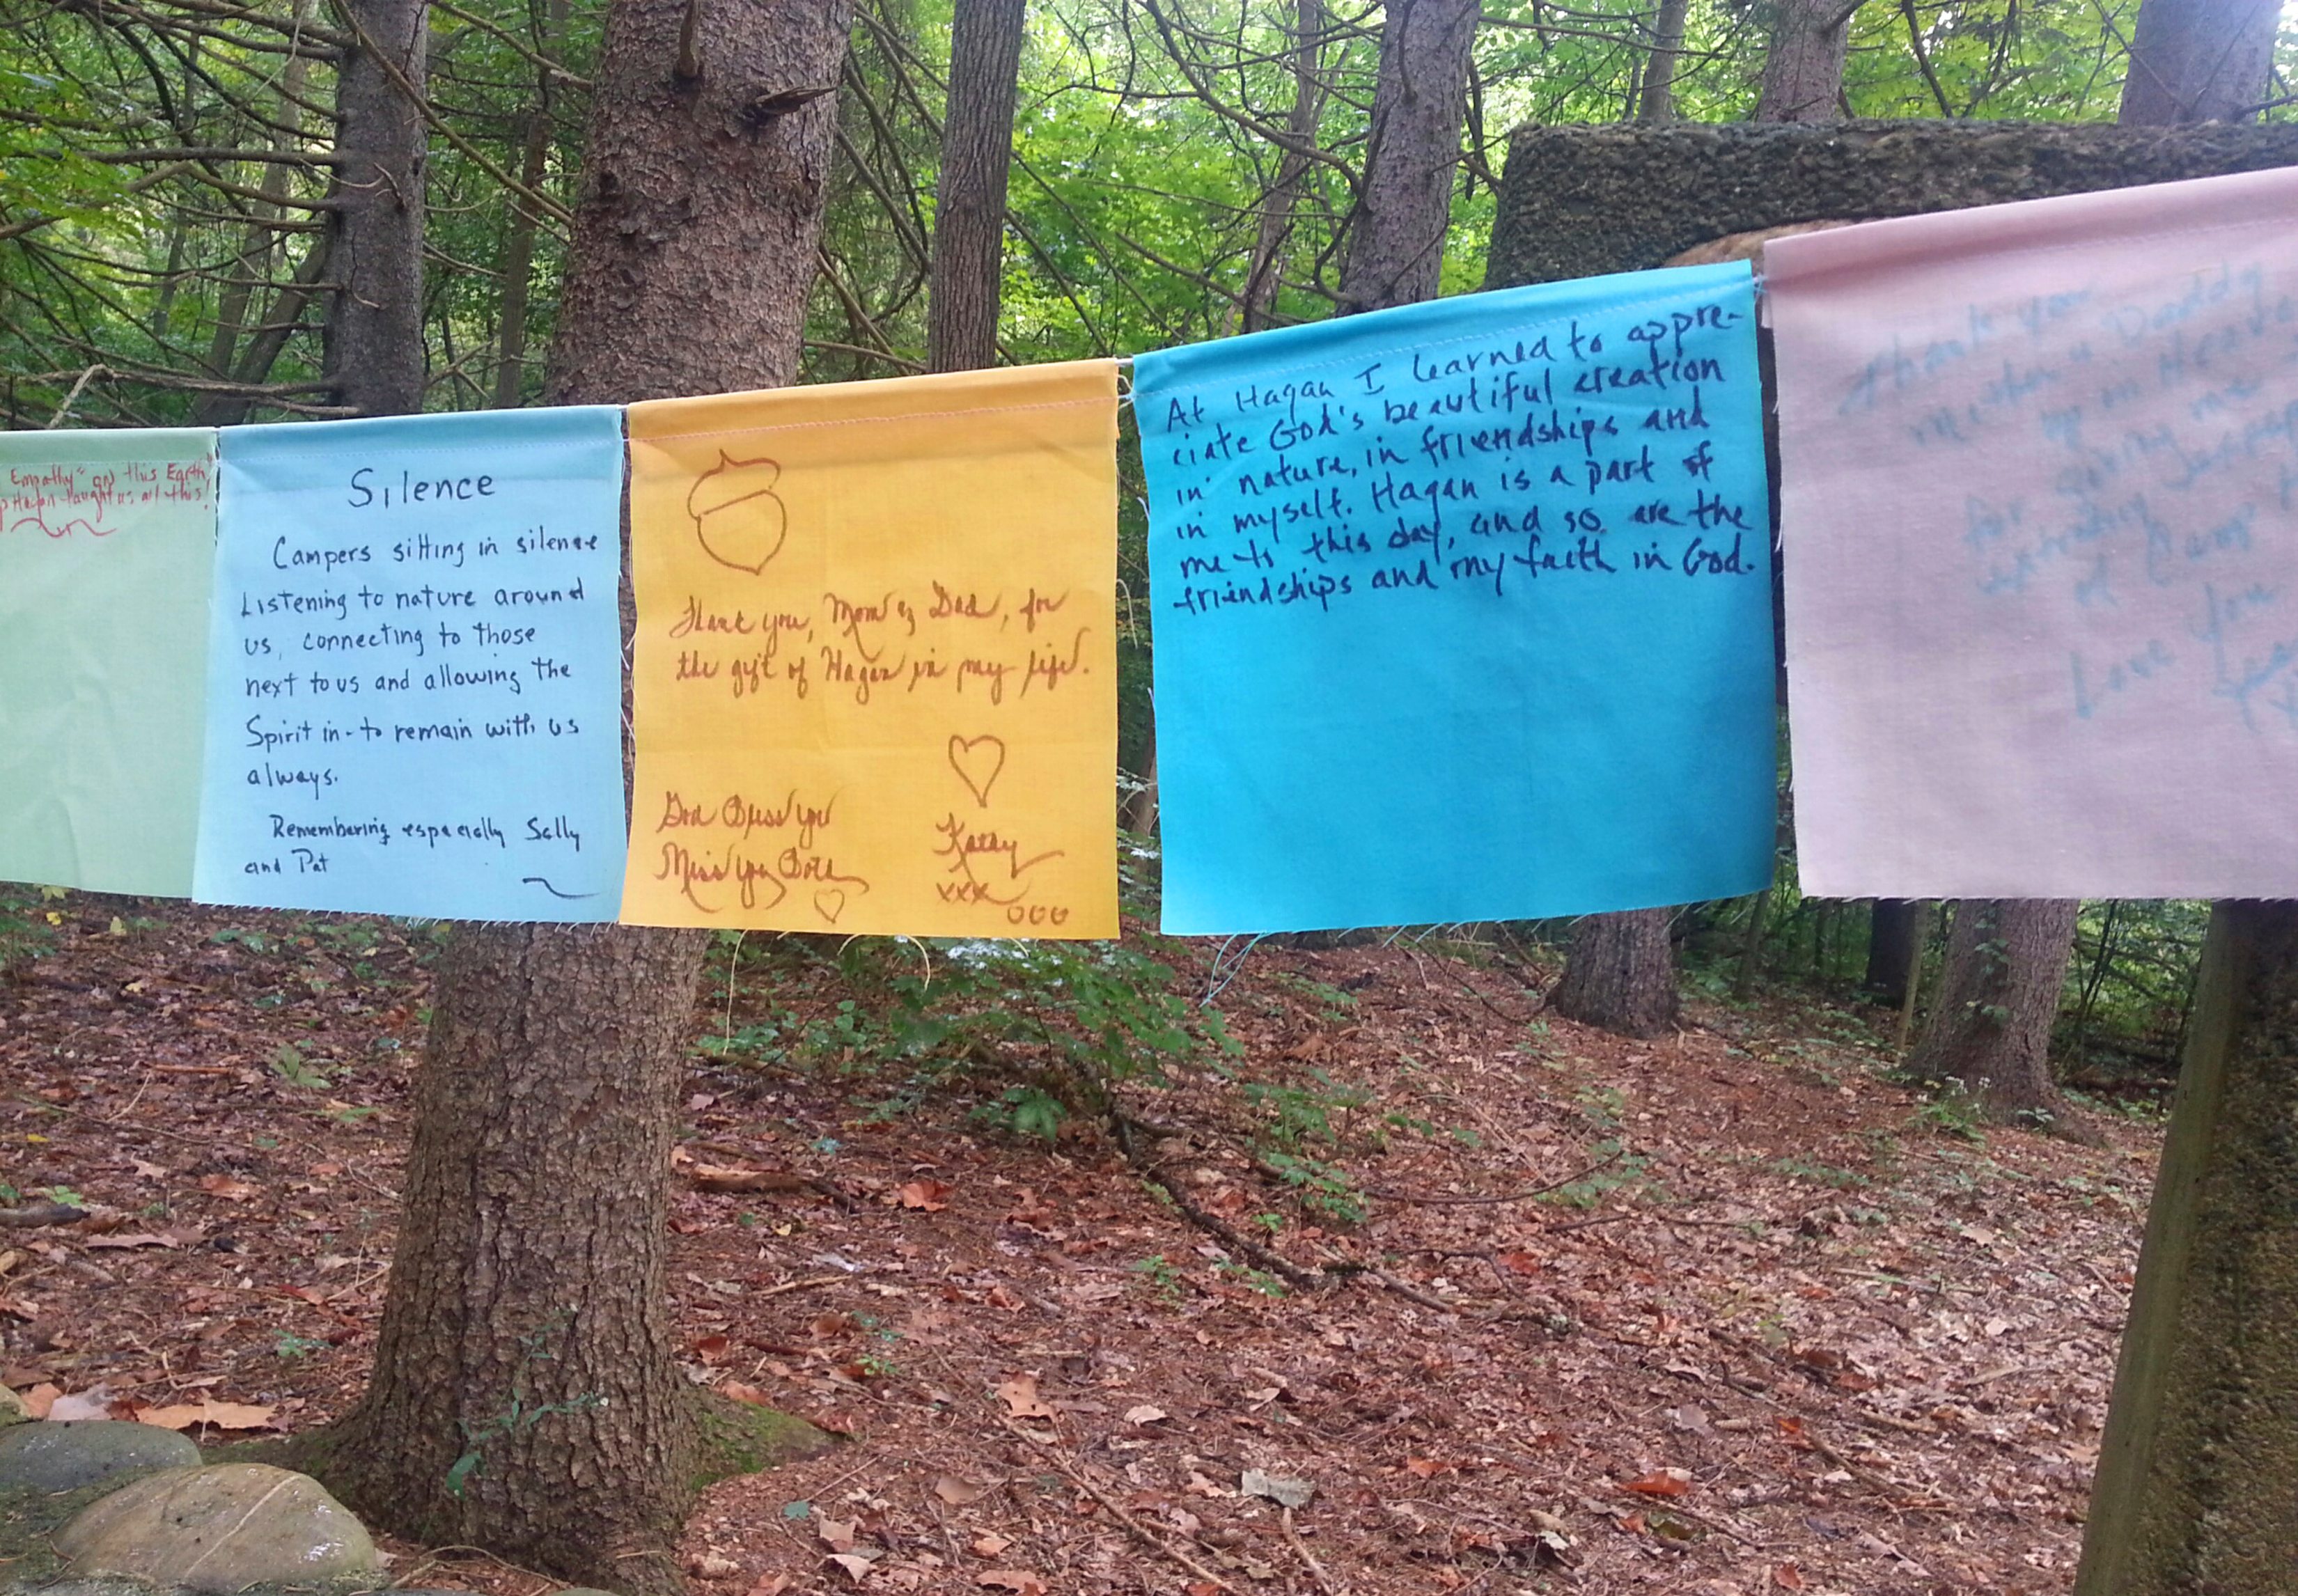 Empathy" on this Earth,
p Hagan taught us all this!
Silence
Campers sitting in silence
Listening to nature around
us, connecting to those
next to us and allowing the
Spirit in - to remain with us
always.
Remembering especially Sally
and Pat
Thank you, Mom & Dad, for
the gift of Hagan in my life.
God Bless you
Miss you Both
Kathy
xxx
ooo
At Hagan I learned to appre-
ciate God's beautiful creation
in nature, in friendships and
in myself. Hagan is a part of
me to this day, and so are the
friendships and my faith in God.
Thank you
Daddy
up in Heaven
for giving me
of Camp
Love you